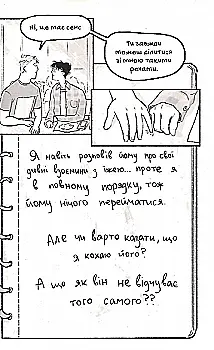 Ні, це має сенс
Ти завжди
можеш ділитися
зі мною такими
речами.
Я навіть розповів йому про свої
дивні взаємини з їжею... проте я
в повному порядку, тож
йому нічого перейматися.
Але чи варто казати, що
я кохаю його?
А що як він не відчуває
того самого??